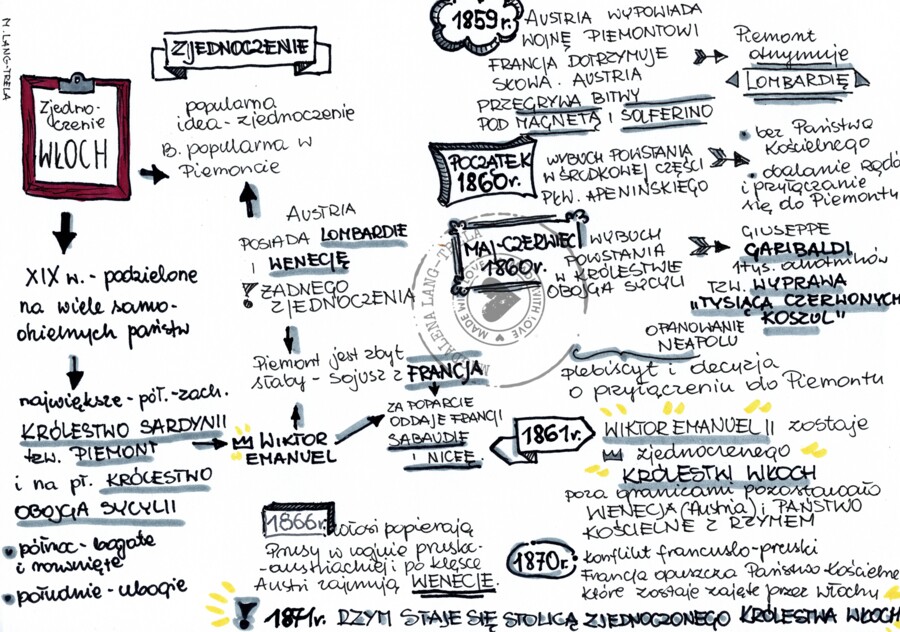 M. LANG-TRELA
ZJEDNOCZENIE
Zjedno-
czenie
WŁOCH
popularna
idea - zjednoczenie
B. popularna w
Piemoncie
XIX w. - podzielone
na wiele samo-
dzielnych państw
największe - pół.-zach.
KRÓLESTWO SARDYNII
tzw. PIEMONT
i na pł. KRÓLESTWO
OBOJGA SYCYLII
północ - bogate
i rozwinięte
południe - ubogie
AUSTRIA
POSIADA LOMBARDIĘ
I WENECJĘ
ŻADNEGO
ZJEDNOCZENIA
Piemont jest zbyt
słaby - sojusz z FRANCJĄ
WIKTOR
EMANUEL
ZA POPARCIE
ODDAJE FRANCJI
SABAUDIĘ
I NICEĘ
1859r.
AUSTRIA WYPOWIADA
WOJNĘ PIEMONTOWI
FRANCJA DOTRZYMUJE
SŁOWA. AUSTRIA
PRZEGRYWA BITWY
POD MAGNETĄ I SOLFERINO
Piemont
otrzymuje
LOMBARDIĘ
POCZĄTEK
1860r.
WYBUCH POWSTANIA
W ŚRODKOWEJ CZĘŚCI
PŁW. APENIŃSKIEGO
bez Państwa
Kościelnego
obalanie rządów
i przyłączanie
się do Piemontu
MAJ-CZERWIEC
1860r.
WYBUCH
POWSTANIA
W KRÓLESTWIE
OBOJGA SYCYLII
GIUSEPPE
GARIBALDI
1tyś. ochotników
TZW. WYPRAWA
"TYSIĄCA CZERWONYCH
KOSZUL"
OPANOWANIE
NEAPOLU
plebiscyt i decyzja
o przyłączeniu do Piemontu
MAGDALENA LANG-TRELA
MADE WITH LOVE
1861r.
WIKTOR EMANUEL II zostaje
zjednoczonego
KRÓLESTW WŁOCH
poza granicami pozostawało
WENECJA (Austria) i PAŃSTWO
KOŚCIELNE Z RZYMEM
1866r.
Włosi popierają
Prusy w wojnie prusko-
-austriackiej i po klęsce
Austri zajmują WENECJE.
1870r.
konflikt francusko-pruski
Francja opuszcza Państwo Kościelne
które zostaje zajęte przez Włochy
1871r. RZYM STAJE SIĘ STOLICĄ ZJEDNOCZONEGO KRÓLESTWA WŁOCH